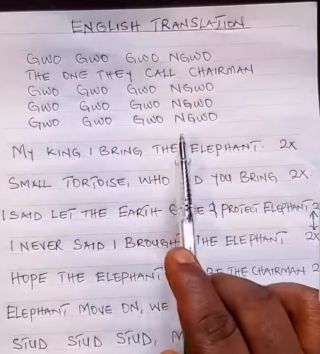 ENGLISH TRANSLATION
GWO GWO GWO NGWO
THE ONE THEY CALL CHAIRMAN
GWO GWO GWO NGWO
GWO GWO GWO NGWO
GWO GWO GWO NGWO
MY KING I BRING THE ELEPHANT. 2X
SMALL TORTOISE, WHO YOU BRING 2X
I SAID LET THE EARTH & PROTECT ELEPHANT 2
I NEVER SAID I BROUGH THE ELEPHANT 2X
HOPE THE ELEPHANT THE CHAIRMAN 2
ELEPHANT MOVE ON, WE
STUD STUD STUD,